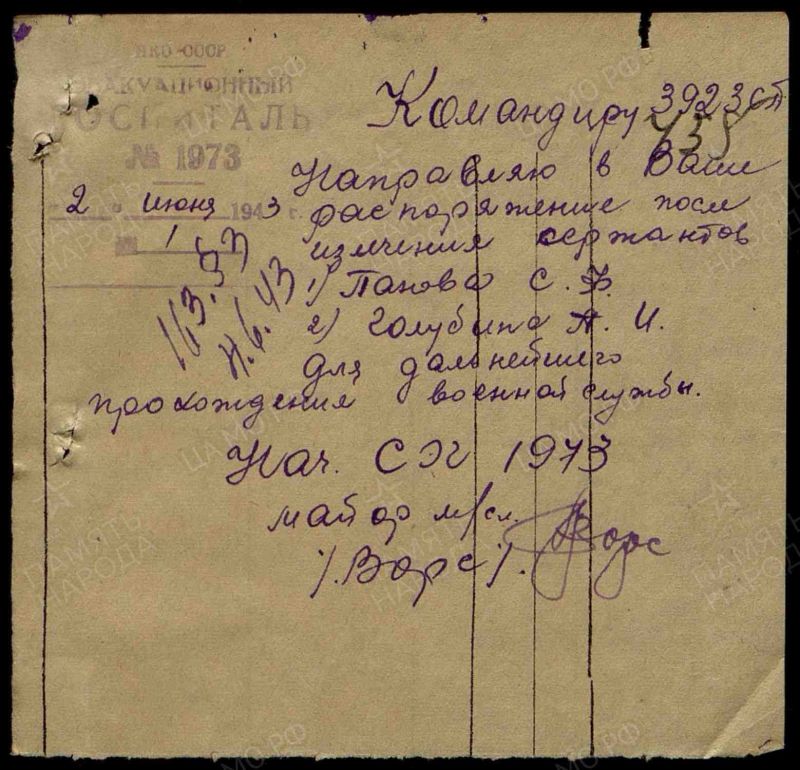 НКО-СССР
ЭВАКУАЦИОННЫЙ
ГОСПИТАЛЬ
№ 1973
2 июня 1943 г.
1
Командиру 392 зсп
Направляю в Ваше
распоряжение после
излечения сержантов
1) Панова С. Ф.
2) Голубина А. И.
для дальнейшего
прохождения военной службы.
Нач. СЭГ 1973
майор м/сл.
/. Ворс /. Ворс
4.6.43
ПАМЯТЬ НАРОДА
ЦАМО.РФ